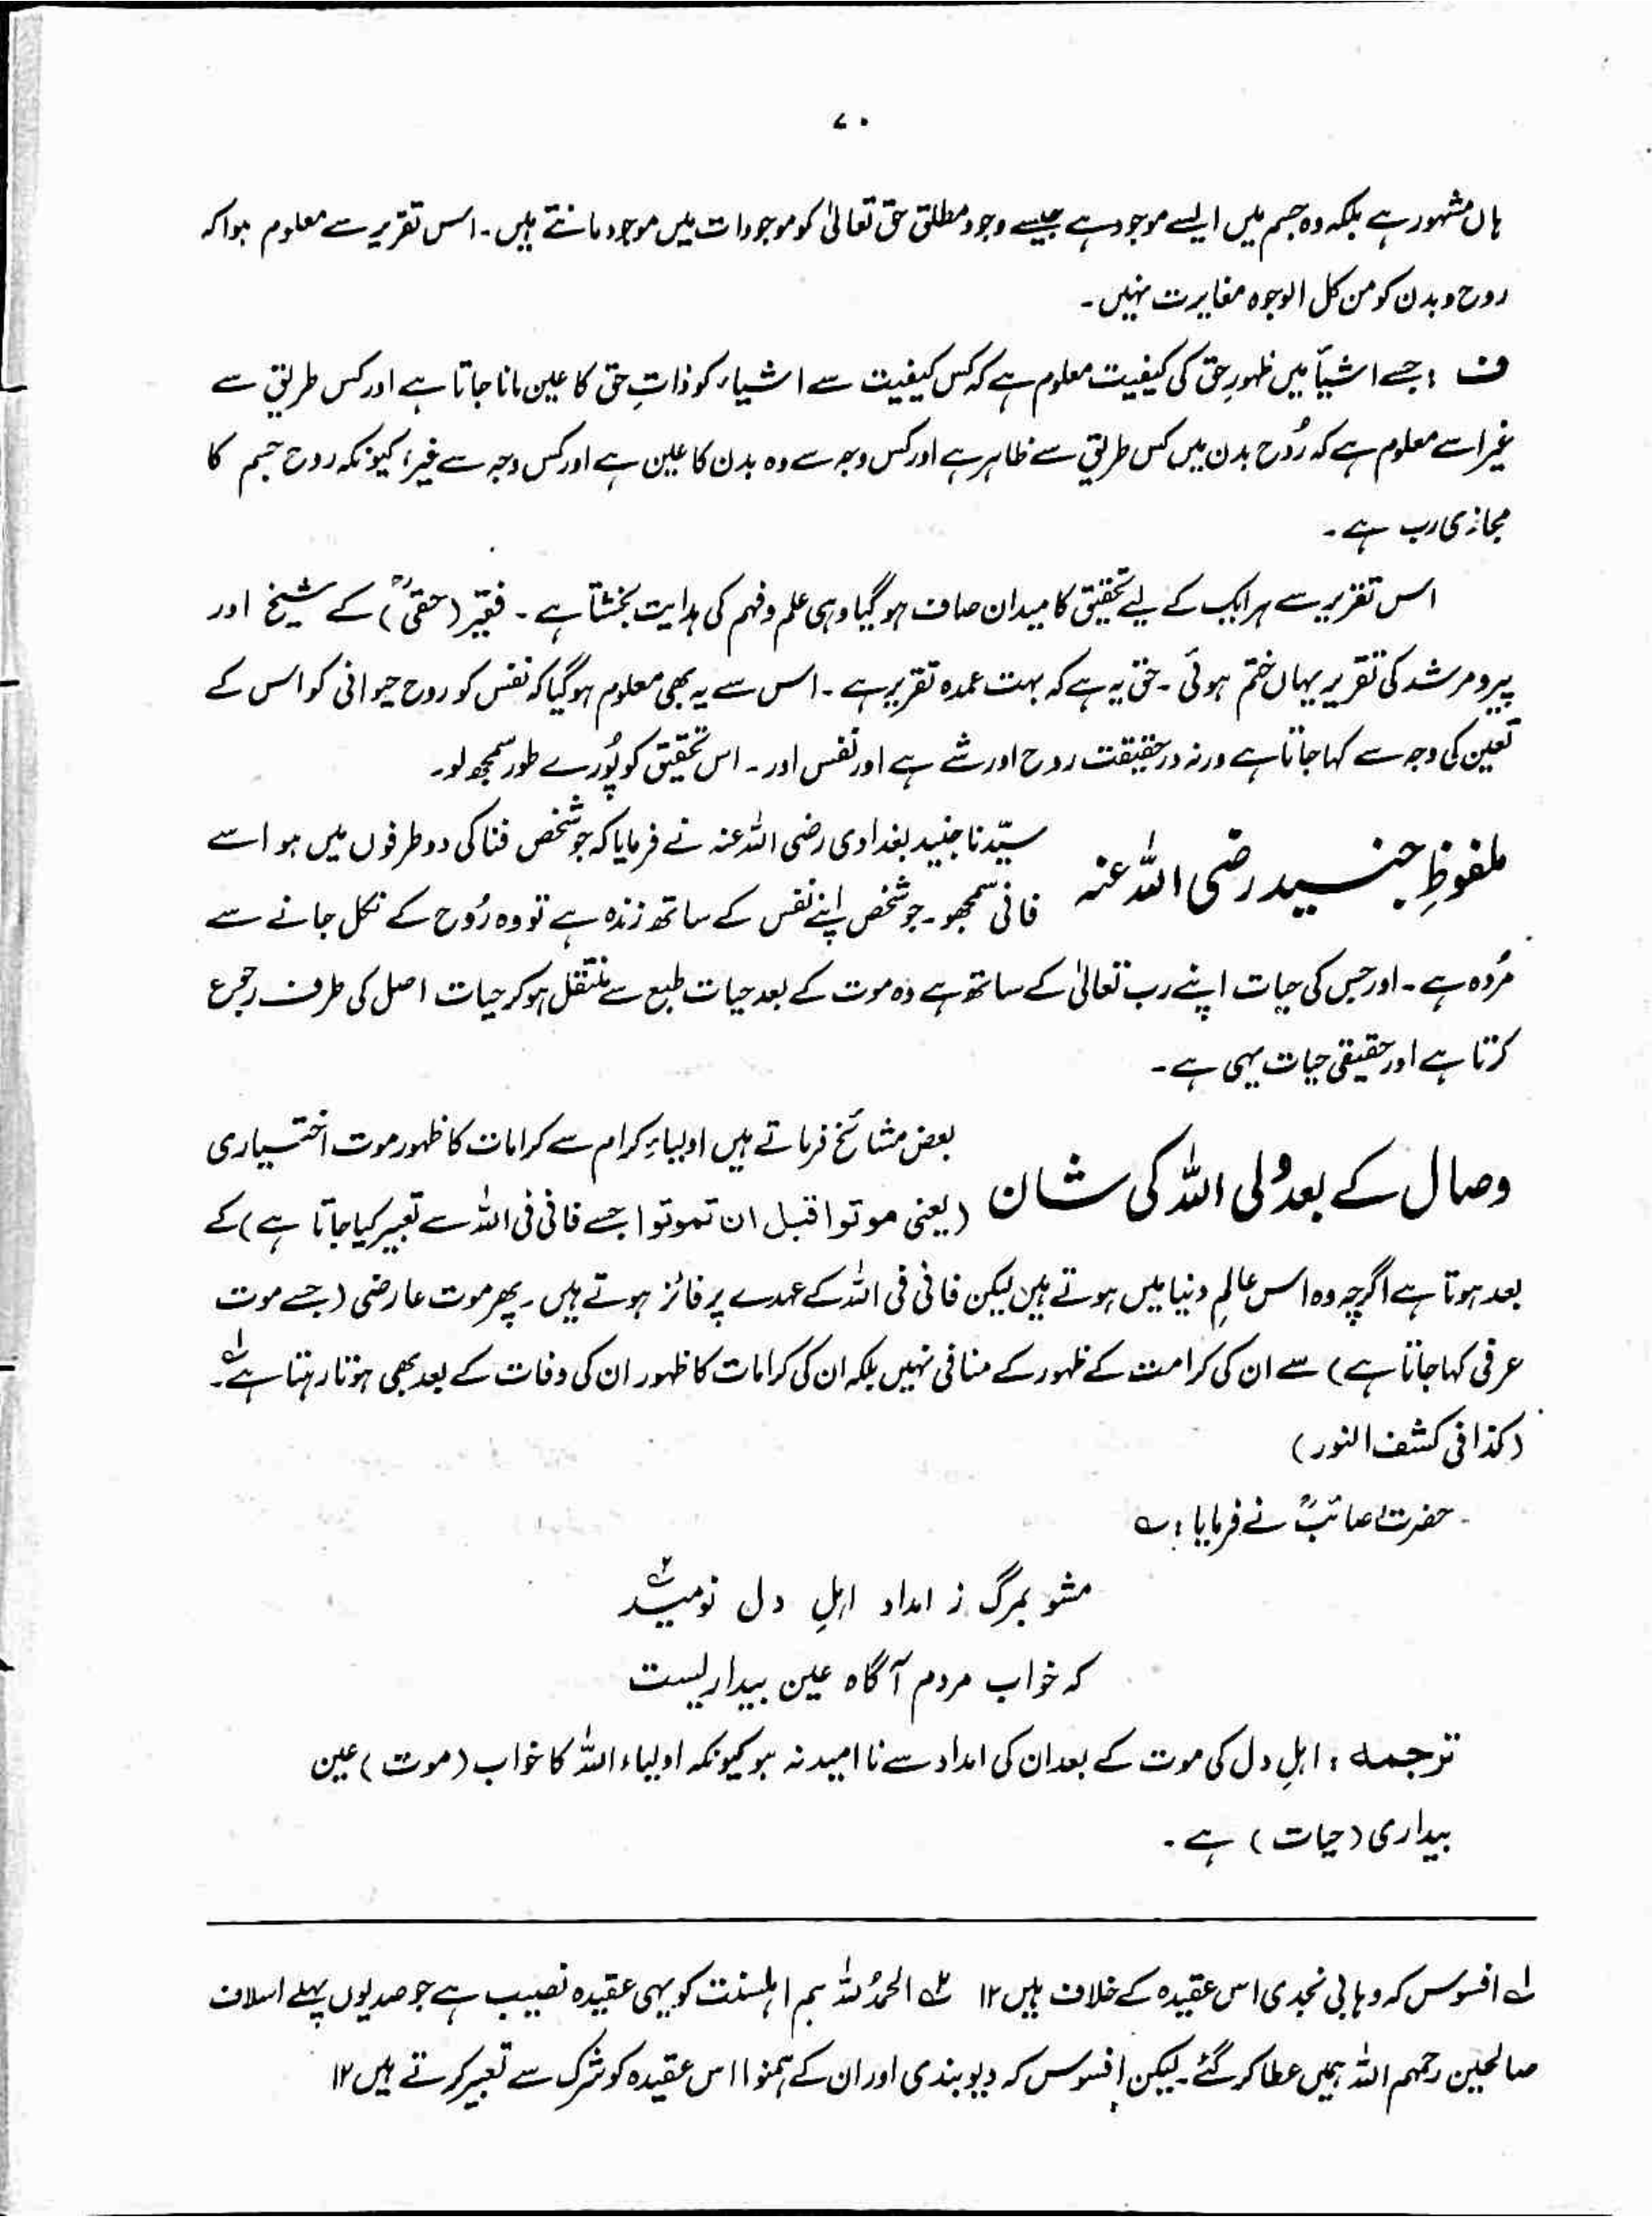 ۷۰
ہاں مشہور ہے بلکہ وہ جسم میں ایسے موجود ہے جیسے وجود مطلق حق تعالیٰ کو موجودات میں موجود مانتے ہیں۔ اس تقریر سے معلوم ہوا کہ
روح و بدن کو من کل الوجوہ مغایرت نہیں۔
ف : جسے اشیأ میں ظہورِ حق کی کیفیت معلوم ہے کہ کس کیفیت سے اشیاء کو ذاتِ حق کا عین مانا جاتا ہے اور کس طریق سے
غیر اسے معلوم ہے کہ رُوح بدن میں کس طریق سے ظاہر ہے اور کس وجہ سے وہ بدن کا عین ہے اور کس وجہ سے غیر، کیونکہ روح جسم کا
مجازی رب ہے۔
اس تقریر سے ہر ایک کے لیے تحقیق کا میدان صاف ہو گیا وہی علم و فہم کی ہدایت بخشتا ہے۔ فقیر (حقیؒ) کے شیخ اور
پیر و مرشد کی تقریر یہاں ختم ہوئی۔ حق یہ ہے کہ بہت عمدہ تقریر ہے۔ اس سے یہ بھی معلوم ہو گیا کہ نفس کو روح حیوانی کو اس کے
تعین کی وجہ سے کہا جاتا ہے ورنہ درحقیقت روح اور شے ہے اور نفس اور۔ اس تحقیق کو پُورے طور سمجھ لو۔
ملفوظِ جنید رضی اللہ عنہ سیّدنا جنید بغدادی رضی اللہ عنہ نے فرمایا کہ جو شخص فنا کی دو طرفوں میں ہو اسے
فانی سمجھو۔ جو شخص اپنے نفس کے ساتھ زندہ ہے تو وہ رُوح کے نکل جانے سے
مُردہ ہے۔ اور جس کی حیات اپنے رب تعالیٰ کے ساتھ ہے وہ موت کے بعد حیات طبع سے منتقل ہو کر حیات اصل کی طرف رجوع
کرتا ہے اور حقیقی حیات یہی ہے۔
وصال کے بعد ولی اللہ کی شان بعض مشائخ فرماتے ہیں اولیاءِ کرام سے کرامات کا ظہور موت اختیاری
(یعنی موتوا قبل ان تموتوا جسے فانی فی اللہ سے تعبیر کیا جاتا ہے) کے
بعد ہوتا ہے اگرچہ وہ اس عالمِ دنیا میں ہوتے ہیں لیکن فانی فی اللہ کے عہدے پر فائز ہوتے ہیں۔ پھر موت عارضی (جسے موت
عرفی کہا جاتا ہے) سے ان کی کرامت کے ظہور کے منافی نہیں بلکہ ان کی کرامات کا ظہور ان کی وفات کے بعد بھی ہوتا رہتا ہے۔ ؂۱
(کذا فی کشف النور)
حضرت صائبؒ نے فرمایا : ؎
مشو بمرگ ز امداد اہلِ دل نومید ؂۲
کہ خواب مردم آگاہ عین بیداریست
ترجمہ : اہلِ دل کی موت کے بعد ان کی امداد سے نا امید نہ ہو کیونکہ اولیاء اللہ کا خواب (موت) عین
بیداری (حیات) ہے۔
؂۱ افسوس کہ وہابی نجدی اس عقیدہ کے خلاف ہیں ۱۲ ؂۲ الحمدُ للہ ہم اہلسنت کو یہی عقیدہ نصیب ہے جو صدیوں پہلے اسلاف
صالحین رحمہم اللہ ہمیں عطا کر گئے۔ لیکن افسوس کہ دیوبندی اور ان کے ہمنوا اس عقیدہ کو شرک سے تعبیر کرتے ہیں ۱۲